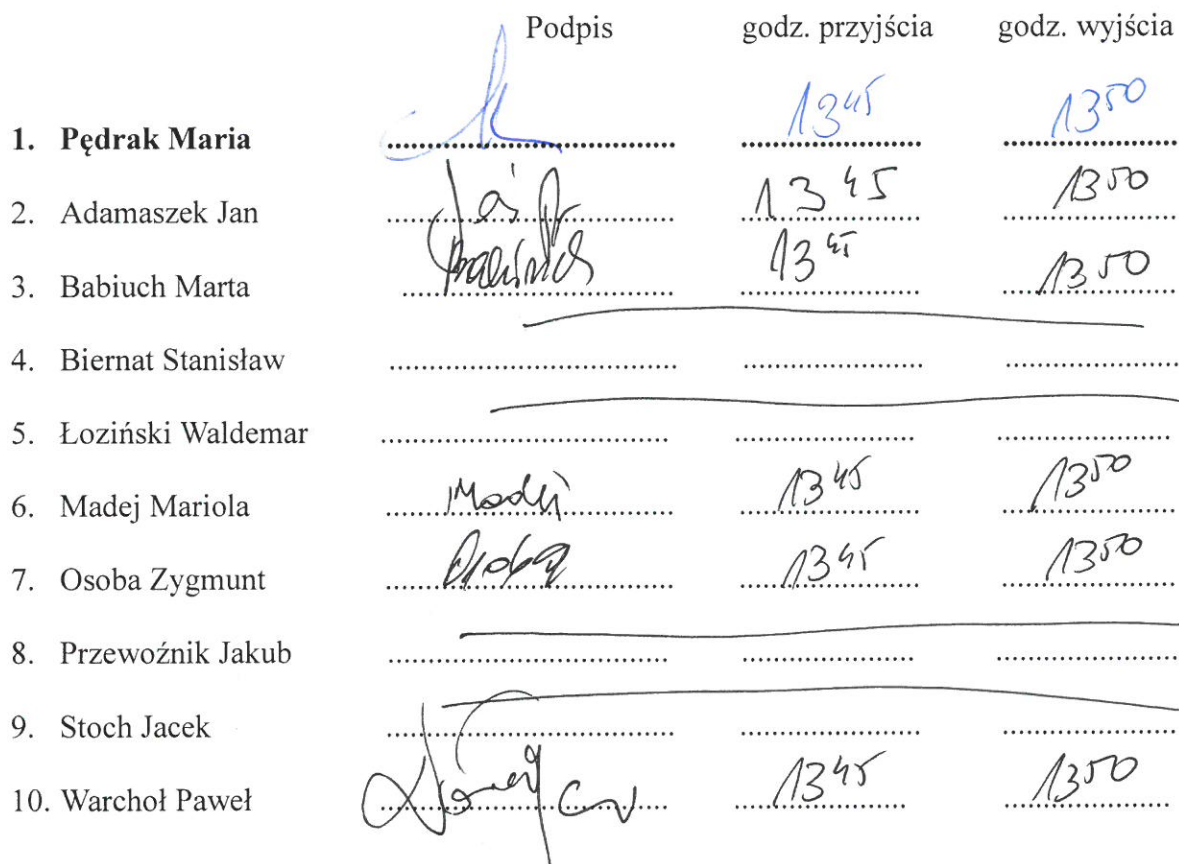 Podpis godz. przyjścia godz. wyjścia
1. Pędrak Maria 13 45 13 50
2. Adamaszek Jan 13 45 13 50
3. Babiuch Marta 13 45 13 50
4. Biernat Stanisław
5. Łoziński Waldemar
6. Madej Mariola Madej 13 45 13 50
7. Osoba Zygmunt Osoba 13 45 13 50
8. Przewoźnik Jakub
9. Stoch Jacek
10. Warchoł Paweł 13 45 13 50